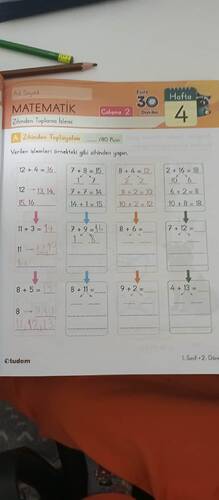 Ad Soyad
MATEMATİK
Zihinden Toplama İşlemi
Çalışma 2
30
Hafta
4
A Zihinden Toplayalım
/80 Puan
Verilen işlemleri örnekteki gibi zihinden yapın.
12 + 4 = 16
12 → 13, 14,
15, 16
11 + 3 = 14
11
8 + 5 = 13
8 →
11, 12, 13
7 + 8 = 15
7 + 7 = 14
14 + 1 = 15
7 + 9 =
8 + 11 =
8 + 4 = 12
8 + 2 = 10
10 + 2 = 12
8 + 6 =
9 + 2 =
2 + 16 = 18
6 + 2 = 8
10 + 8 = 18
7 + 12 =
4 + 13 =
tudem
1. Sınıf • 2. Dönem